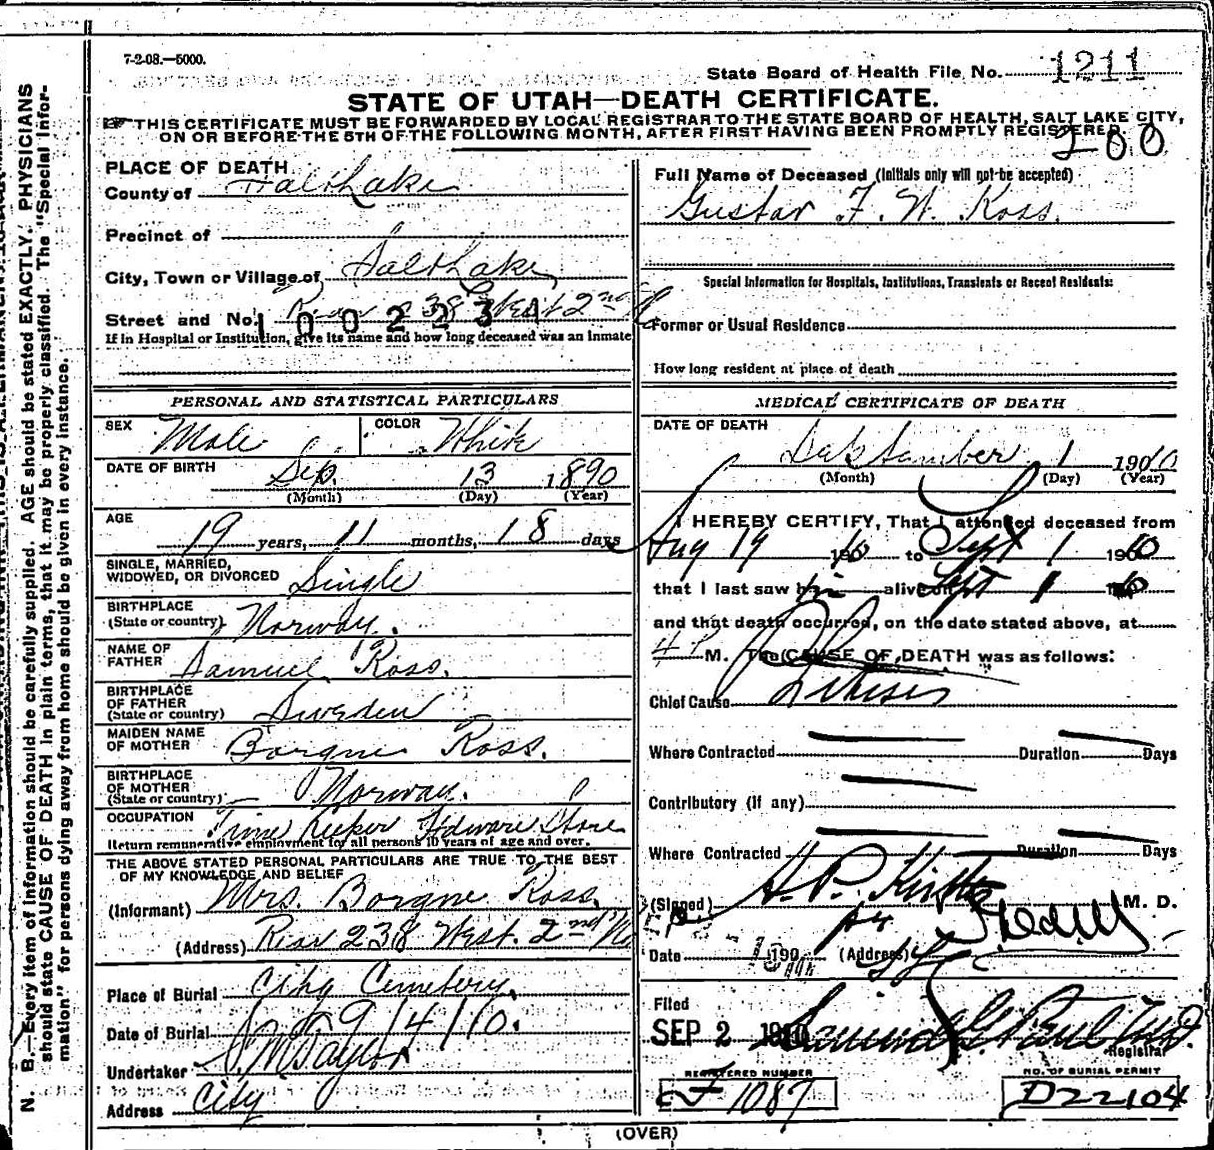 7-2-08.—5000.
State Board of Health File No. 1211
STATE OF UTAH—DEATH CERTIFICATE.
THIS CERTIFICATE MUST BE FORWARDED BY LOCAL REGISTRAR TO THE STATE BOARD OF HEALTH, SALT LAKE CITY,
ON OR BEFORE THE 5TH OF THE FOLLOWING MONTH, AFTER FIRST HAVING BEEN PROMPTLY REGISTERED.
200
PLACE OF DEATH
County of Salt Lake
Precinct of
City, Town or Village of Salt Lake
Street and No. Rear 238 West 2nd N
1002234
If in Hospital or Institution, give its name and how long deceased was an Inmate
Full Name of Deceased (Initials only will not be accepted)
Gustav F. W. Ross.
Special Information for Hospitals, Institutions, Transients or Recent Residents:
Former or Usual Residence
How long resident at place of death
PERSONAL AND STATISTICAL PARTICULARS
SEX Male COLOR White
DATE OF BIRTH Sep. 13 1890
(Month) (Day) (Year)
AGE
19 years, 11 months, 18 days
SINGLE, MARRIED,
WIDOWED, OR DIVORCED Single
BIRTHPLACE
(State or country) Norway.
NAME OF
FATHER Samuel Ross.
BIRTHPLACE
OF FATHER
(State or country) Sweden
MAIDEN NAME
OF MOTHER Borgne Ross.
BIRTHPLACE
OF MOTHER
(State or country) Norway.
OCCUPATION Time Keeper Hdware Store
Return remunerative employment for all persons 10 years of age and over.
THE ABOVE STATED PERSONAL PARTICULARS ARE TRUE TO THE BEST
OF MY KNOWLEDGE AND BELIEF
(Informant) Mrs. Borgne Ross.
(Address) Rear 238 West. 2nd No
Place of Burial City Cemetery.
Date of Burial 9/4/10.
Undertaker S. M. Taylor
Address City
MEDICAL CERTIFICATE OF DEATH
DATE OF DEATH
1 1910
(Month) (Day) (Year)
I HEREBY CERTIFY, That I attended deceased from
Aug 19 1910 to Sept 1 1910
that I last saw him alive on Sept 1 1910
and that death occurred, on the date stated above, at
4 P M. The CAUSE OF DEATH was as follows:
Chief Cause Phthisis
Where Contracted Duration Days
Contributory (if any)
Where Contracted Duration Days
(Signed) M. D.
Date 190 (Address)
Filed
SEP 2 1910 Samuel G. Paul M.D.
Registrar
REGISTERED NUMBER
F 1087
NO. OF BURIAL PERMIT
D22104
(OVER)
N. B.—Every item of information should be carefully supplied. AGE should be stated EXACTLY. PHYSICIANS
should state CAUSE OF DEATH in plain terms, that it may be properly classified. The "Special Infor-
mation" for persons dying away from home should be given in every instance.